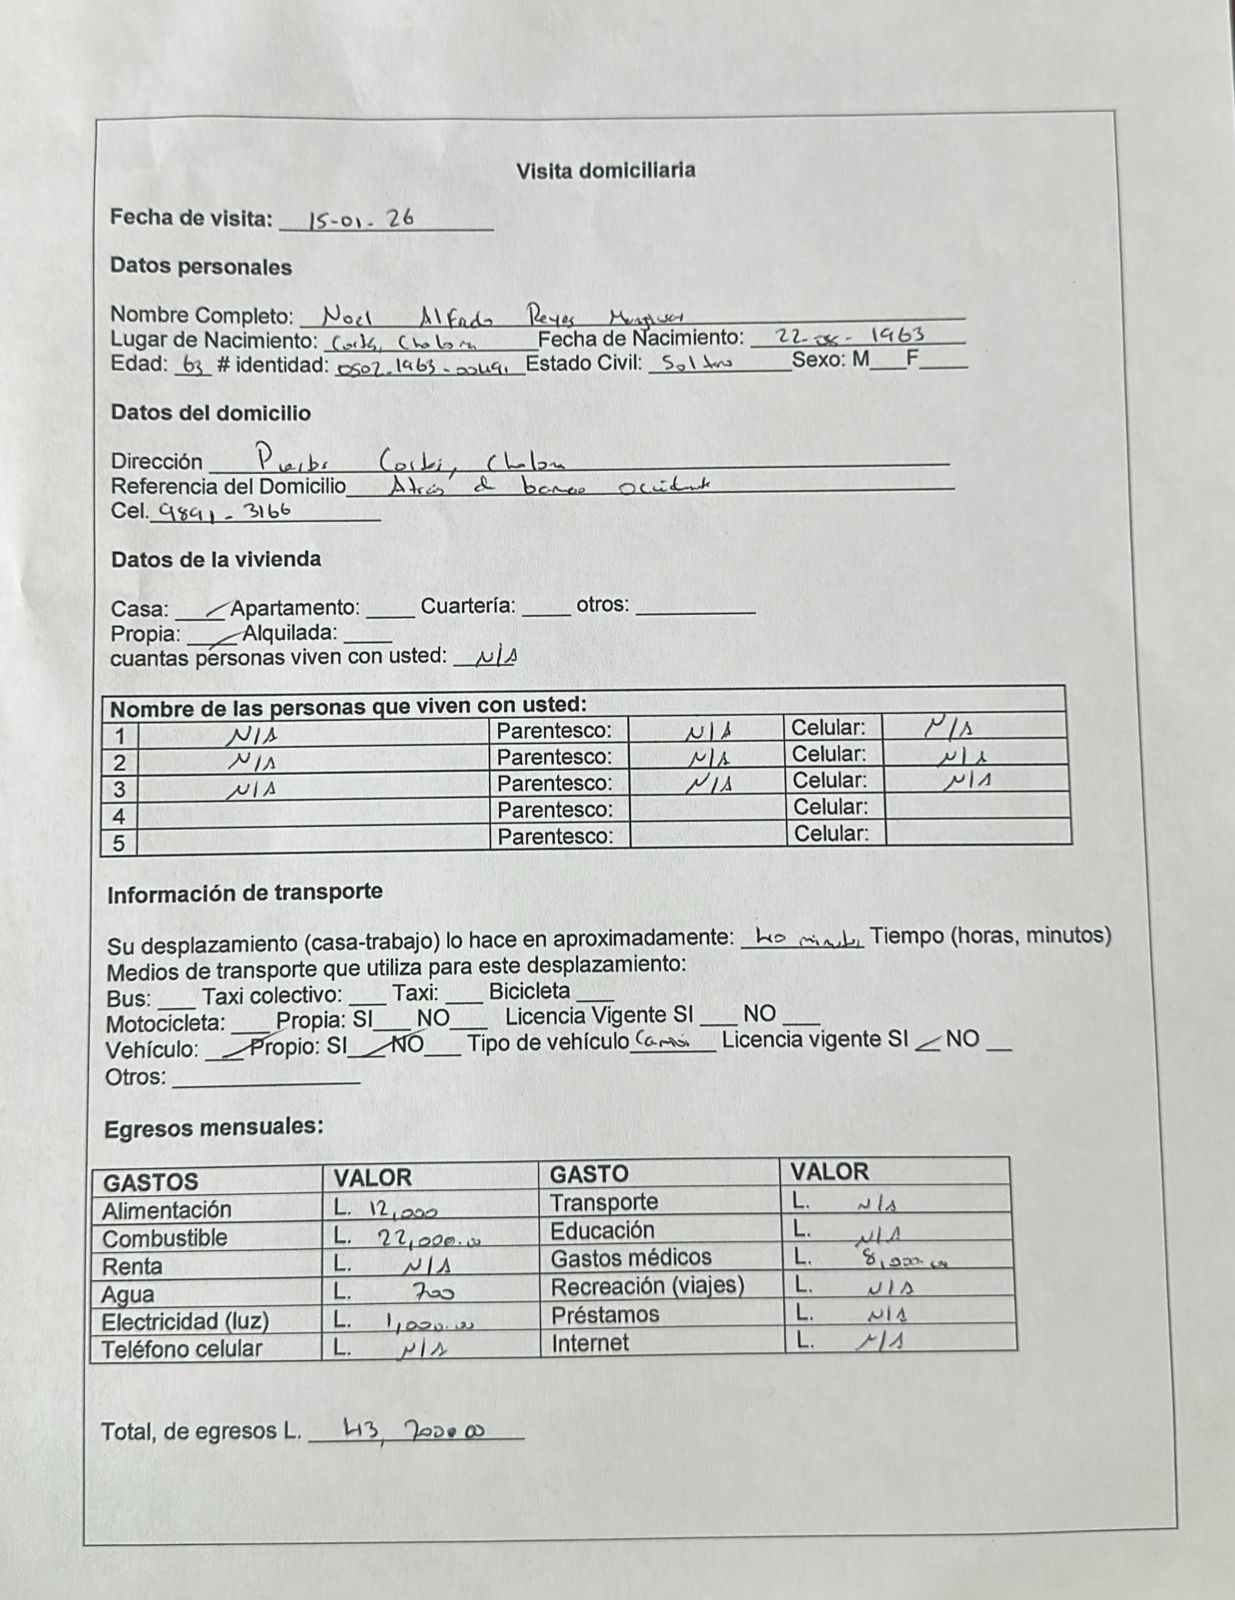 Visita domiciliaria
Fecha de visita: 15-01-26
Datos personales
Nombre Completo: Noel Alfredo Reyes
Lugar de Nacimiento: Cortés, Choloma Fecha de Nacimiento: 22-08-1963
Edad: 63 # identidad: 0502-1963-00491 Estado Civil: Soltero Sexo: M___F____
Datos del domicilio
Dirección Cortés, Choloma
Referencia del Domicilio Atrás de banco occidente
Cel. 9891-3166
Datos de la vivienda
Casa: ✓ Apartamento: ____ Cuartería: ____ otros: __________
Propia: ✓ Alquilada: ____
cuantas personas viven con usted: N/A
Nombre de las personas que viven con usted:
1 N/A Parentesco: N/A Celular: N/A
2 N/A Parentesco: N/A Celular: N/A
3 N/A Parentesco: N/A Celular: N/A
4 Parentesco: Celular:
5 Parentesco: Celular:
Información de transporte
Su desplazamiento (casa-trabajo) lo hace en aproximadamente: 40 minutos Tiempo (horas, minutos)
Medios de transporte que utiliza para este desplazamiento:
Bus: ___ Taxi colectivo: ___ Taxi: ___ Bicicleta ___
Motocicleta: ___ Propia: SI___ NO___ Licencia Vigente SI ___ NO ___
Vehículo: ✓ Propio: SI ✓ NO___ Tipo de vehículo Camión Licencia vigente SI ✓ NO __
Otros: _______________
Egresos mensuales:
GASTOS VALOR GASTO VALOR
Alimentación L. 12,000 Transporte L. N/A
Combustible L. 22,000.00 Educación L. N/A
Renta L. N/A Gastos médicos L. 8,000.00
Agua L. 700 Recreación (viajes) L. N/A
Electricidad (luz) L. 1,000.00 Préstamos L. N/A
Teléfono celular L. N/A Internet L. N/A
Total, de egresos L. 43,700.00